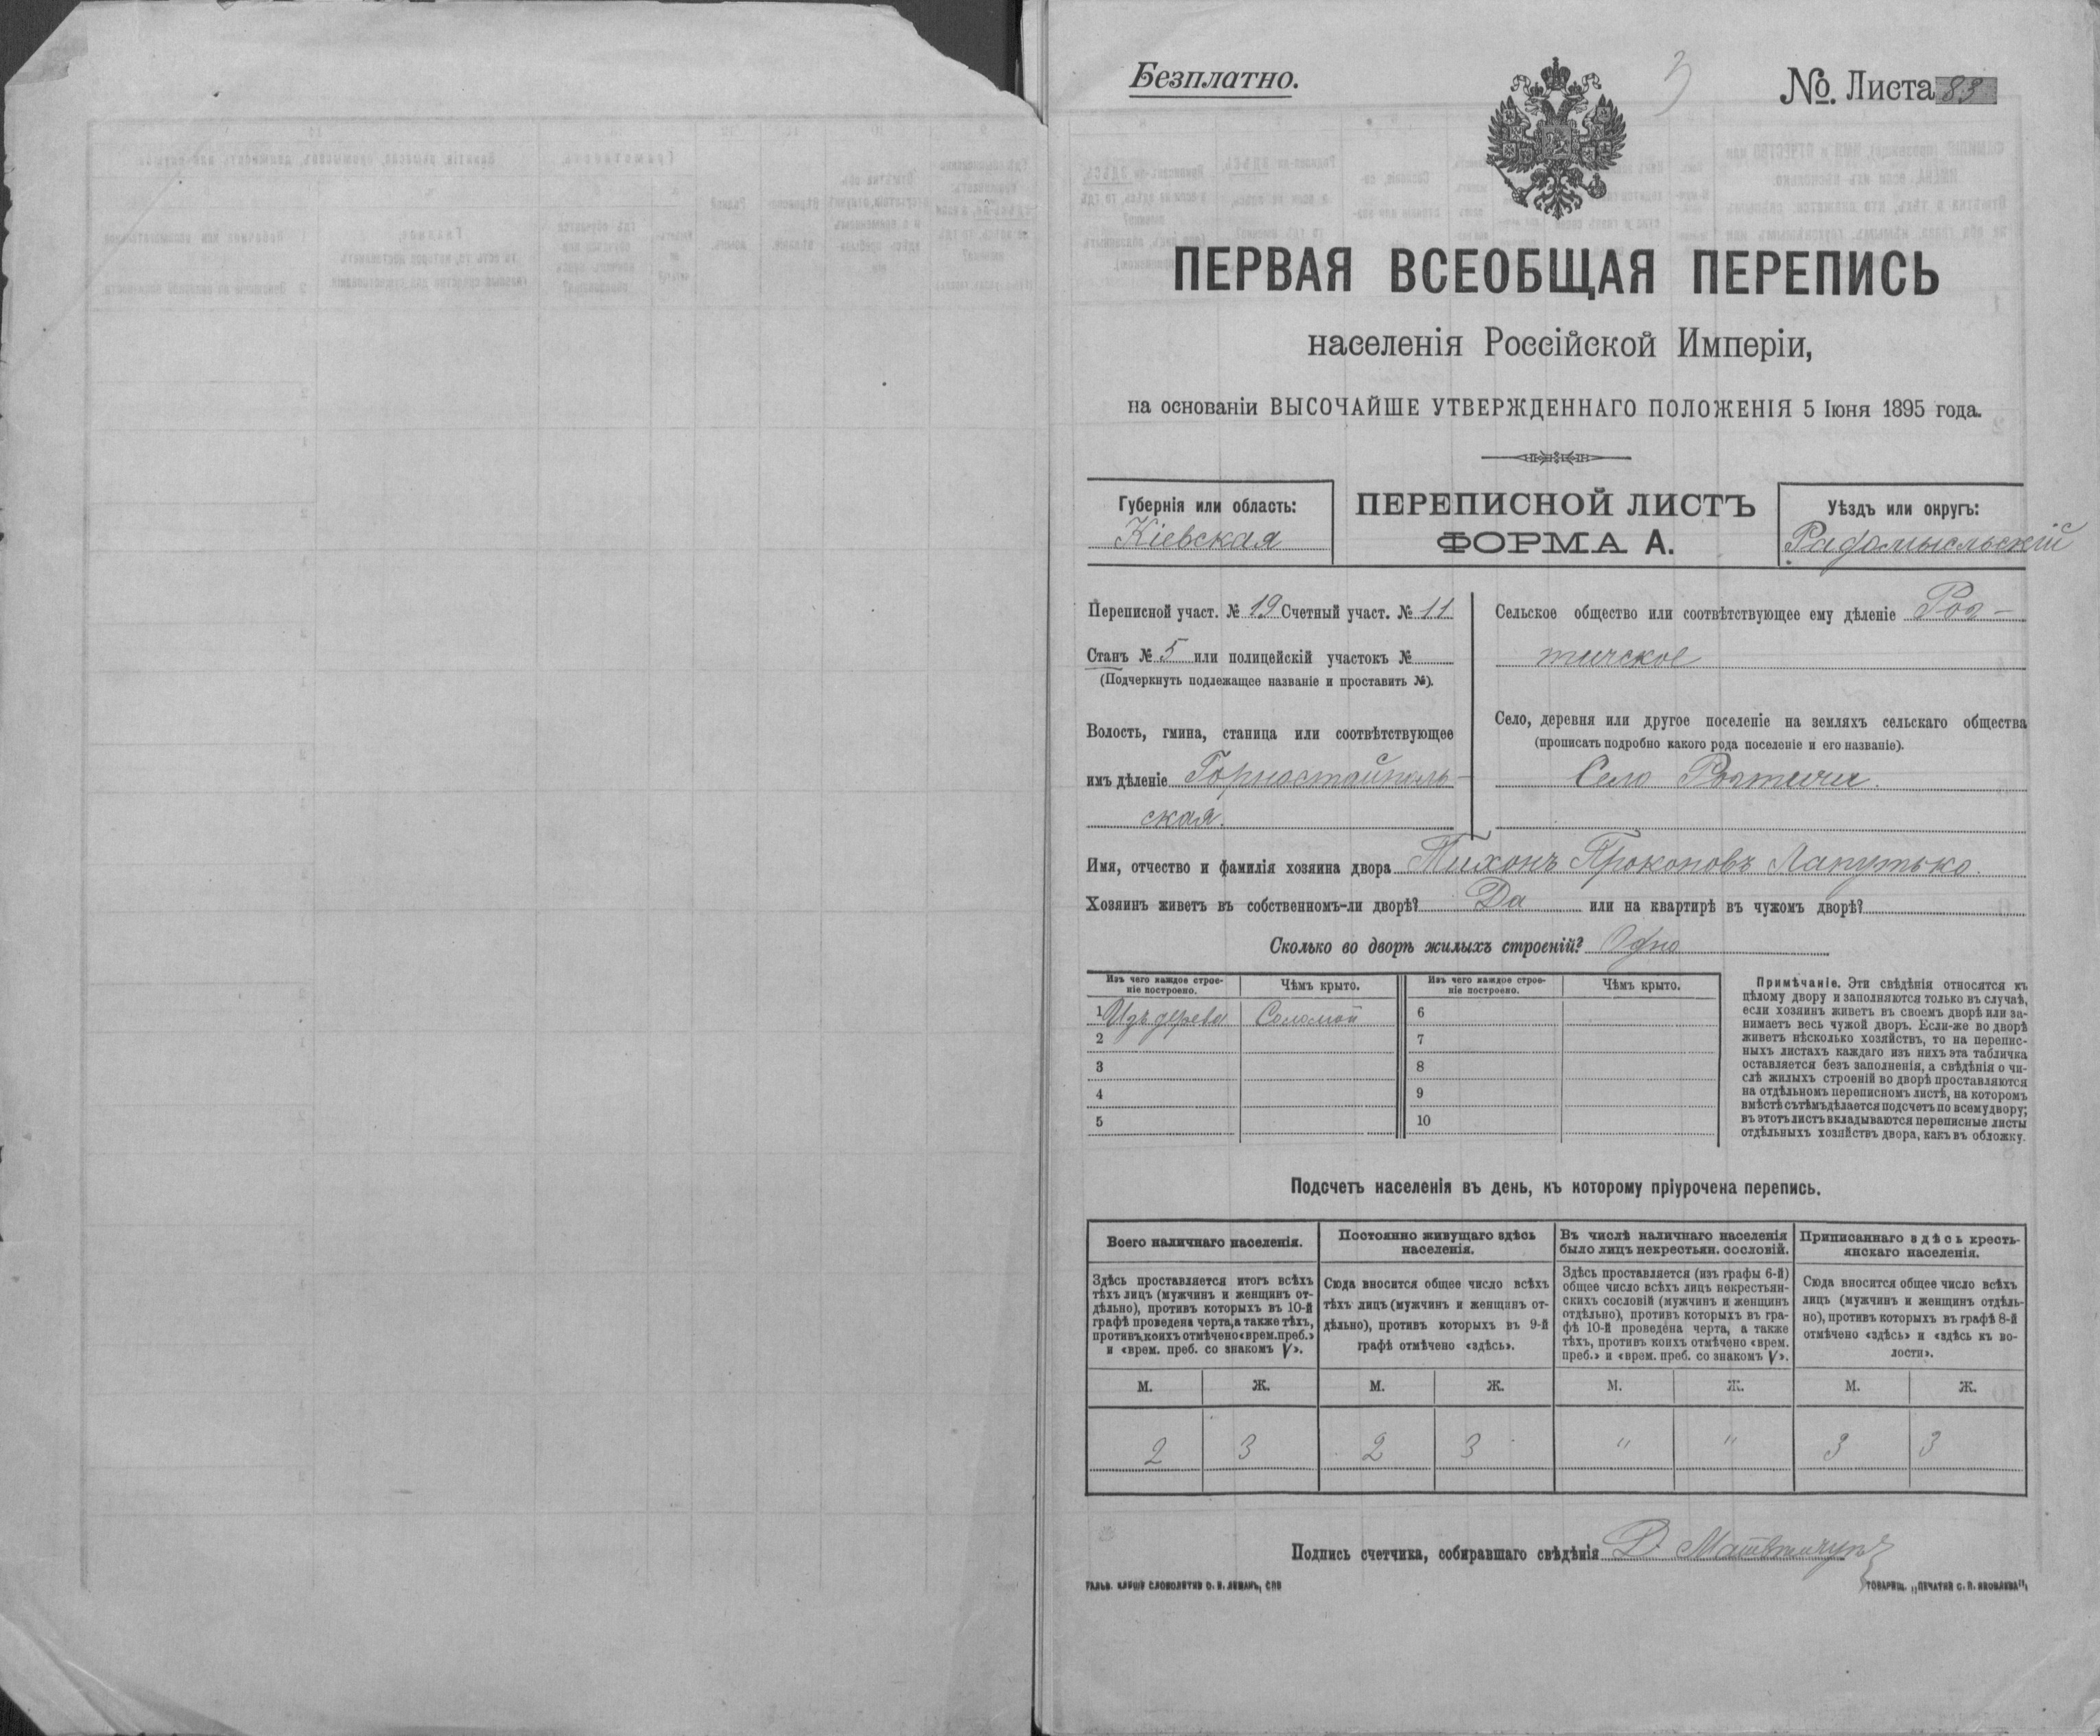 Безплатно.
№. Листа 83
3
ПЕРВАЯ ВСЕОБЩАЯ ПЕРЕПИСЬ
населенія Россійской Имперіи,
на основаніи ВЫСОЧАЙШЕ УТВЕРЖДЕННАГО ПОЛОЖЕНІЯ 5 Іюня 1895 года.
Губернія или область:
Кіевская
ПЕРЕПИСНОЙ ЛИСТЪ
ФОРМА А.
Уѣздъ или округъ:
Радомысльскій
Переписной участ. № 19 Счетный участ. № 11
Станъ № 5 или полицейскій участокъ №
(Подчеркнуть подлежащее названіе и проставить №).
Волость, гмина, станица или соотвѣтствующее
имъ дѣленіе Горностайполь-
ская.
Сельское общество или соотвѣтствующее ему дѣленіе Роо-
тичское
Село, деревня или другое поселеніе на земляхъ сельскаго общества
(прописать подробно какого рода поселеніе и его названіе).
Село Роотичи.
Имя, отчество и фамилія хозяина двора Тихонъ Прокоповъ Лапутько.
Хозяинъ живетъ въ собственномъ-ли дворѣ? Да или на квартирѣ въ чужомъ дворѣ?
Сколько во дворѣ жилыхъ строеній? Одно
Изъ чего каждое строе-
ніе построено.
Чѣмъ крыто.
Изъ чего каждое строе-
ніе построено.
Чѣмъ крыто.
1 Изъ дерева Соломой 6
2 7
3 8
4 9
5 10
Примѣчаніе. Эти свѣдѣнія относятся къ
цѣлому двору и заполняются только въ случаѣ,
если хозяинъ живетъ въ своемъ дворѣ или за-
нимаетъ весь чужой дворъ. Если-же во дворѣ
живетъ нѣсколько хозяйствъ, то на перепис-
ныхъ листахъ каждаго изъ нихъ эта табличка
оставляется безъ заполненія, а свѣдѣнія о чи-
слѣ жилыхъ строеній во дворѣ проставляются
на отдѣльномъ переписномъ листѣ, на которомъ
вмѣстѣ съ тѣмъ дѣлается подсчетъ по всему двору;
въ этотъ листъ вкладываются переписные листы
отдѣльныхъ хозяйствъ двора, какъ въ обложку.
Подсчетъ населенія въ день, къ которому пріурочена перепись.
Всего наличнаго населенія.
Здѣсь проставляется итогъ всѣхъ
тѣхъ лицъ (мужчинъ и женщинъ от-
дѣльно), противъ которыхъ въ 10-й
графѣ проведена черта, а также тѣхъ,
противъ коихъ отмѣчено «врем. преб.»
и «врем. преб. со знакомъ V».
Постоянно живущаго здѣсь
населенія.
Сюда вносится общее число всѣхъ
тѣхъ лицъ (мужчинъ и женщинъ от-
дѣльно), противъ которыхъ въ 9-й
графѣ отмѣчено «здѣсь».
Въ числѣ наличнаго населенія
было лицъ некрестьян. сословій.
Здѣсь проставляется (изъ графы 6-й)
общее число всѣхъ лицъ некрестьян-
скихъ сословій (мужчинъ и женщинъ
отдѣльно), противъ которыхъ въ гра-
фѣ 10-й проведена черта, а также
тѣхъ, противъ коихъ отмѣчено «врем.
преб.» и «врем. преб. со знакомъ V».
Приписаннаго здѣсь кресть-
янскаго населенія.
Сюда вносится общее число всѣхъ
лицъ (мужчинъ и женщинъ отдѣль-
но), противъ которыхъ въ графѣ 8-й
отмѣчено «здѣсь» и «здѣсь къ во-
лости».
М. Ж. М. Ж. М. Ж. М. Ж.
2 3 2 3 " " 3 3
Подпись счетчика, собиравшаго свѣдѣнія Д.
ГАЛЬВ. КЛИШЕ СЛОВОЛИТНИ О. И. ЛЕМАНЪ, СПБ
ТОВАРИЩ. „ПЕЧАТНИ С. П. ЯКОВЛЕВА“,